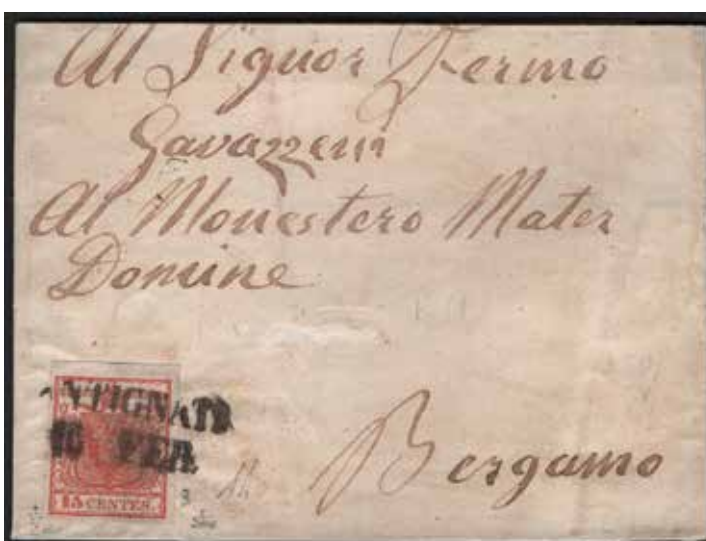 Al Signor Fermo
Gavazzeni
Al Monestero Mater
Domine
NTIGNATE
10 FEB
15 CENTES.
Bergamo